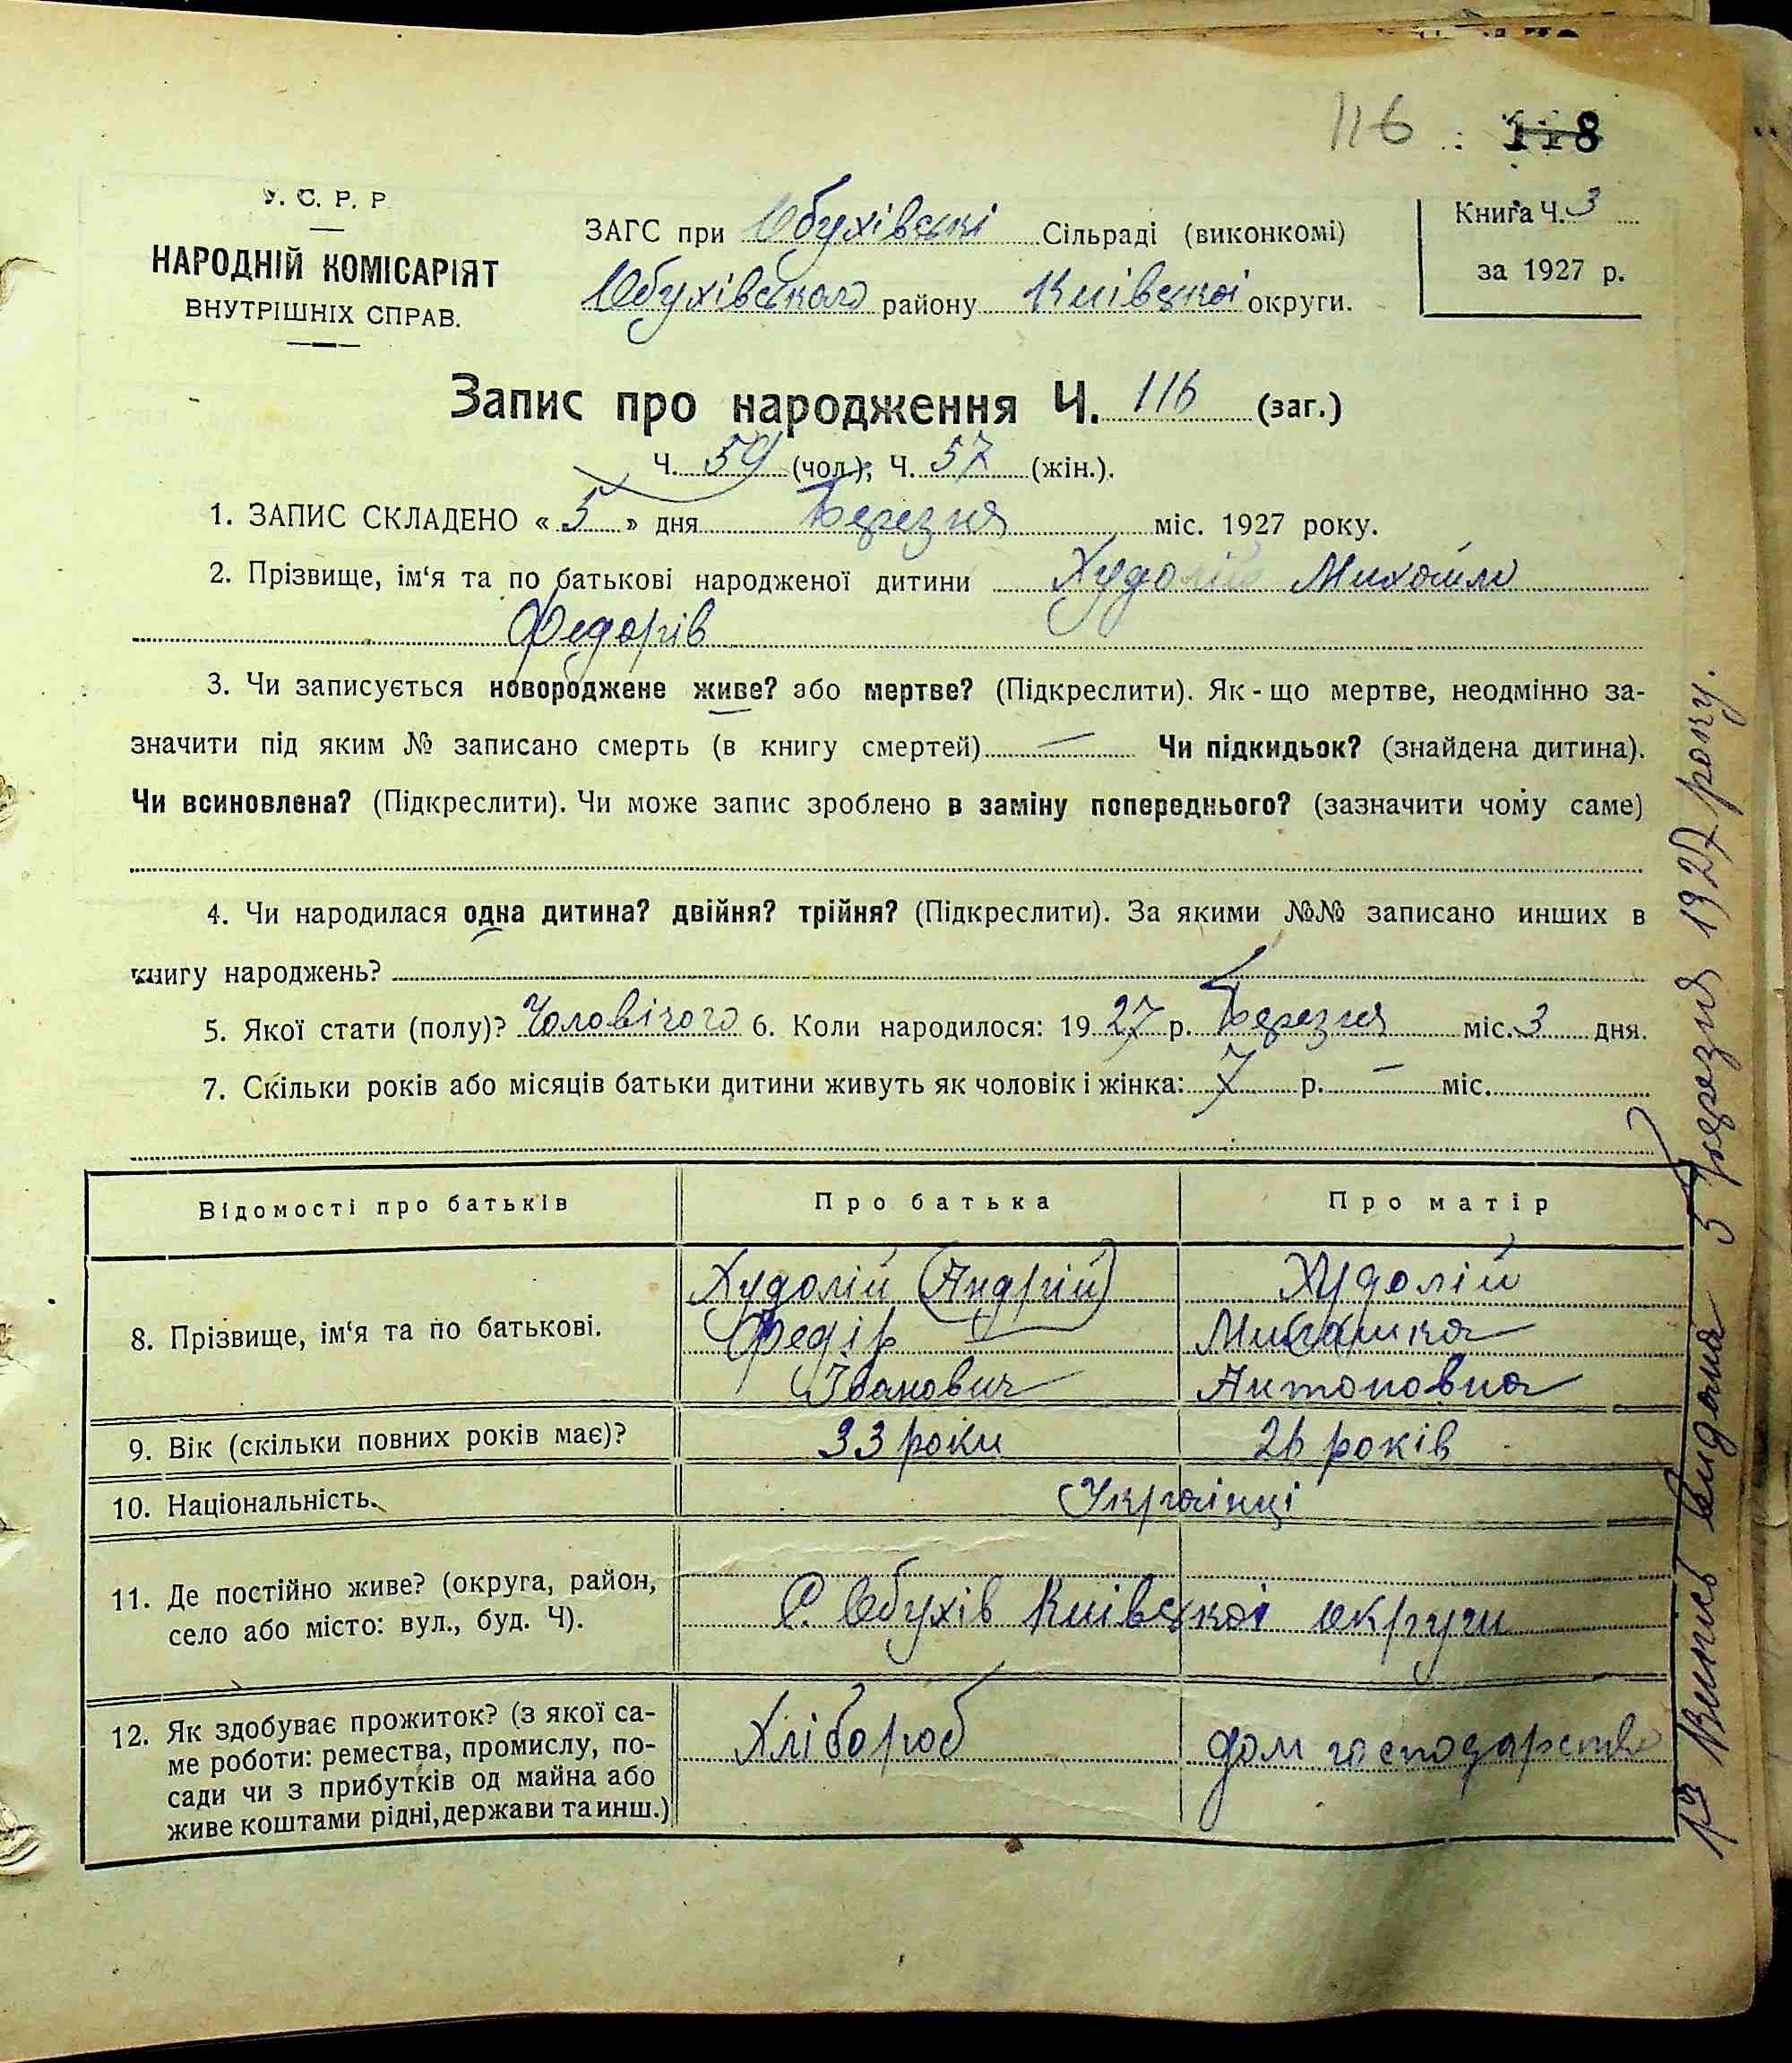 116 118
У. С. Р. Р
НАРОДНІЙ КОМІСАРІЯТ
ВНУТРІШНІХ СПРАВ.
ЗАГС при Обухівські Сільраді (виконкомі)
Обухівського району Київської округи.
Книга Ч. 3
за 1927 р.
Запис про народження Ч. 116 (заг.)
Ч. 59 (чол.); Ч. 57 (жін.).
1. ЗАПИС СКЛАДЕНО « 5 » дня Березня міс. 1927 року.
2. Прізвище, ім‘я та по батькові народженої дитини Худолій Михайло
Федорів
3. Чи записується новороджене живе? або мертве? (Підкреслити). Як-що мертве, неодмінно за-
значити під яким № записано смерть (в книгу смертей) — Чи підкидьок? (знайдена дитина).
Чи всиновлена? (Підкреслити). Чи може запис зроблено в заміну попереднього? (зазначити чому саме)
4. Чи народилася одна дитина? двійня? трійня? (Підкреслити). За якими №№ записано инших в
книгу народжень?
5. Якої стати (полу)? Чоловічого 6. Коли народилося: 1927 р. Березня міс. 3 дня.
7. Скільки років або місяців батьки дитини живуть як чоловік і жінка: 7 р. — міс.
Відомості про батьків Про батька Про матір
8. Прізвище, ім‘я та по батькові.
Худолій (Андрій)
Федір
Іванович
Худолій
Антоновна
9. Вік (скільки повних років має)? 33 роки 26 років
10. Національність. Українці
11. Де постійно живе? (округа, район,
село або місто: вул., буд. Ч).
С. Обухів Київської округи
12. Як здобуває прожиток? (з якої са-
ме роботи: ремества, промислу, по-
сади чи з прибутків од майна або
живе коштами рідні, держави та инш.)
Хлібороб
дом господарство
Випись видана 5 Березня 1927 року.